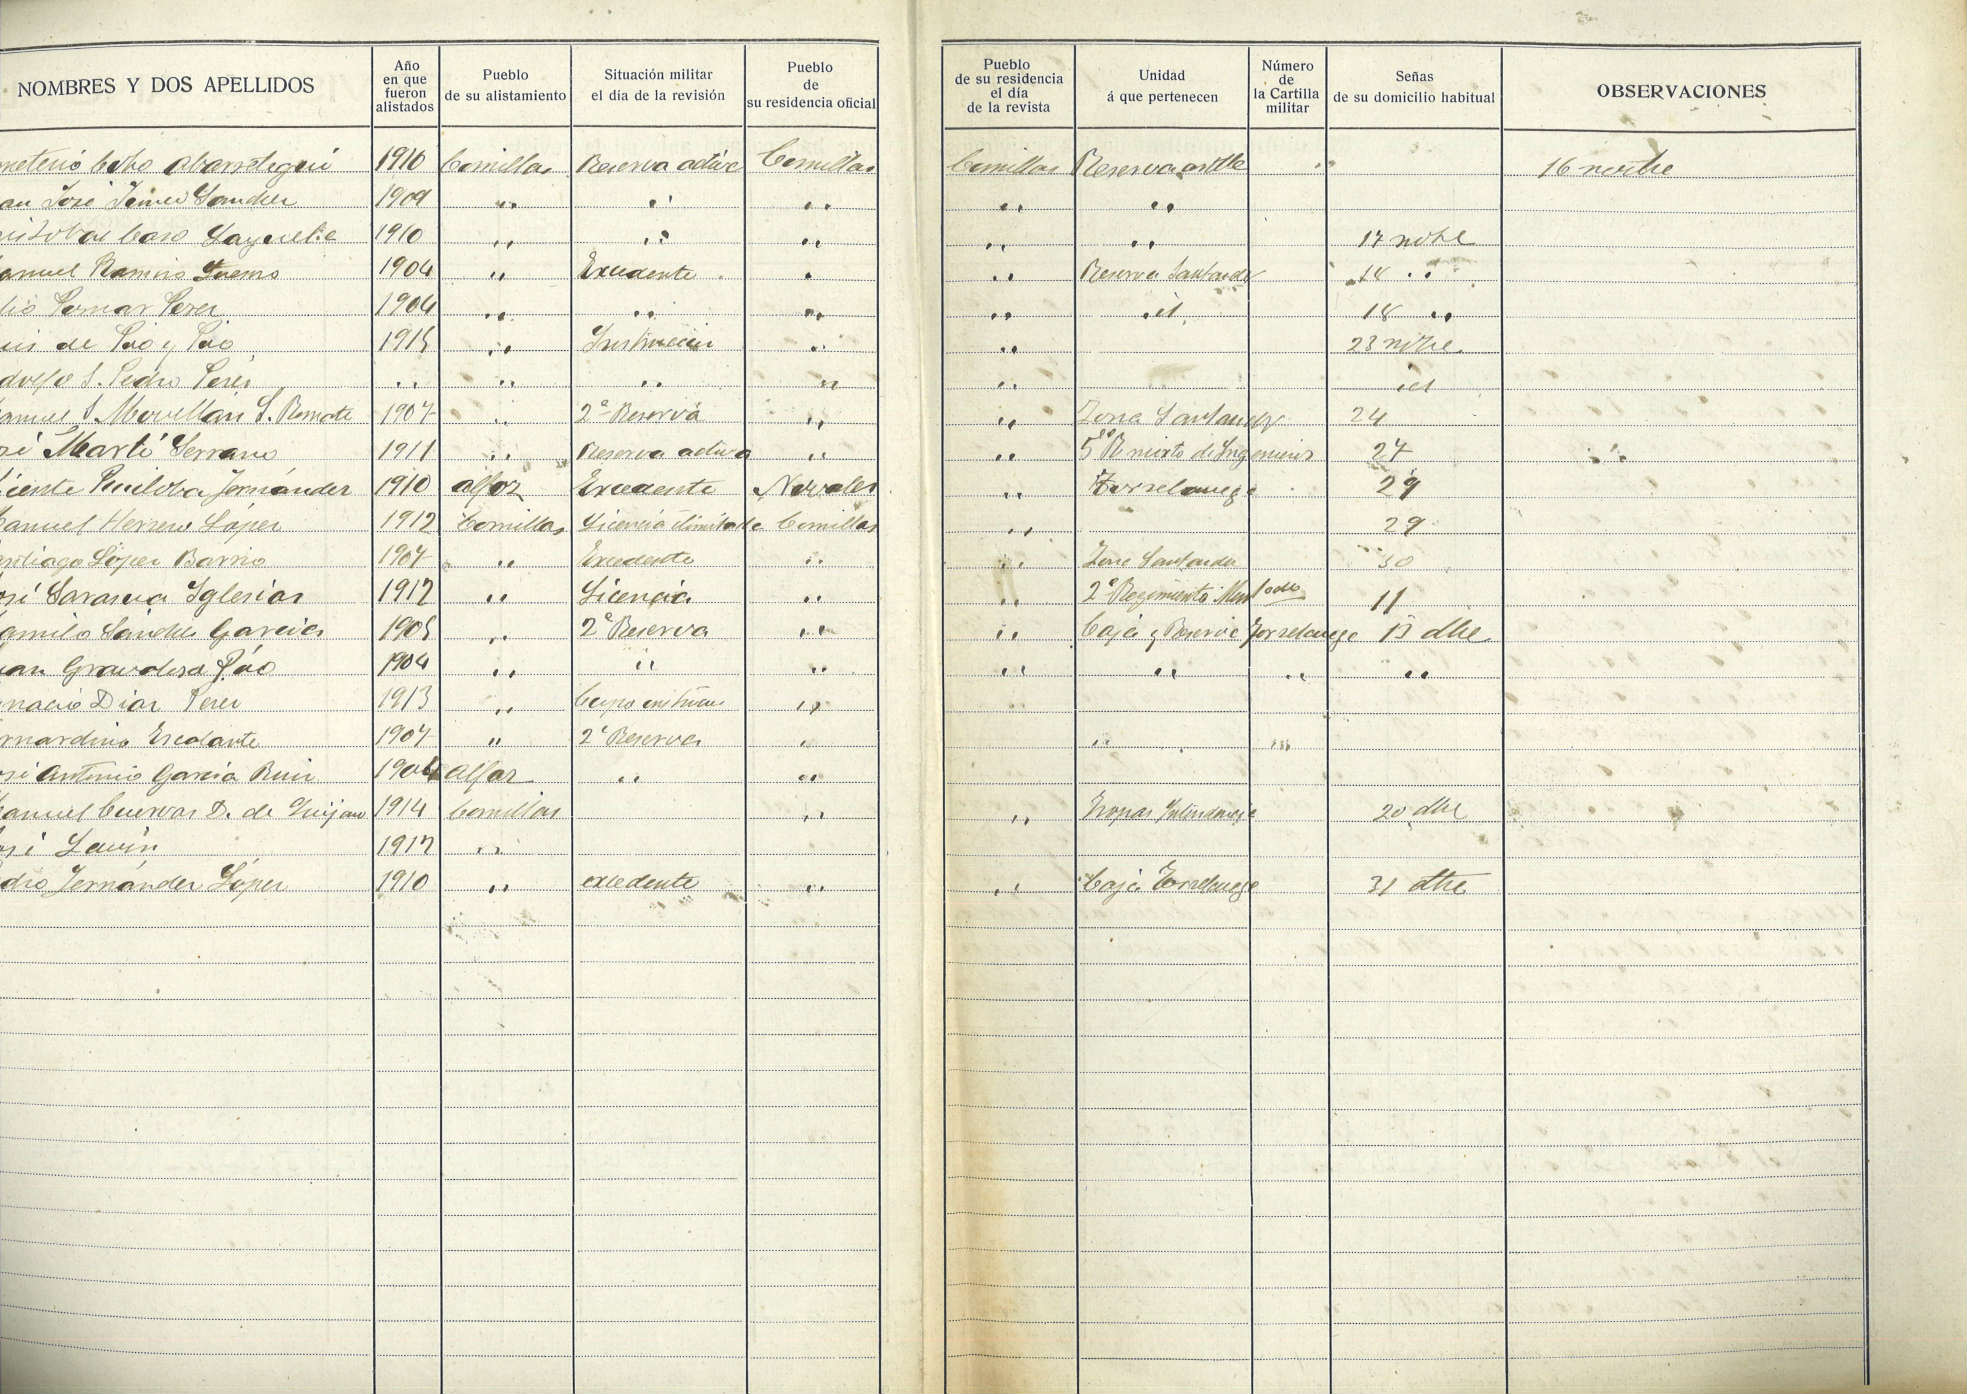 NOMBRES Y DOS APELLIDOS
Año en que fueron alistados
Pueblo de su alistamiento
Situación militar el dia de la revisión
Pueblo de su residencia oficial
Pueblo de su residencia el día de la revista
Unidad á que pertenecen
Número de la Cartilla militar
Señas de su domicilio habitual
OBSERVACIONES
1910 Comillas Reserva activa Comillas Comillas Reserva 16 novbre
José 1909 " " " " "
Caso 1910 " " " " " 17 nobre
anuel Ramiro 1904 " Excedente " " Reserva Santander 18 "
Perez 1904 " " " " id 18 "
uis de Pío y Pío 1915 " Instrucción " " 23 nobre
dolfo S. Pedro Perez " " " " " id
anuel S. Movellan S. Romate 1907 " 2ª Reserva " " Zona Santander 24
osé Martí Serrano 1911 " Reserva activa " " 5º R mixto de Ingenieros 27
icente Fernández 1910 alfoz Excedente Novales " Torrelavega 29
anuel Herrero López 1912 Comillas Licencia ilimitada Comillas " 29
antiago López Barrio 1907 " Excedente " " Zona Santander 30
osé Sarasua Iglesias 1912 " Licencia " " 2º Regimiento 11
amilo Sánchez García 1905 " 2ª Reserva " " Caja y Reserva Torrelavega 13 dbe
uan Pío 1904 " " " " " " "
gnacio Diaz Perez 1913 " Cupo "
rnardino Escalante 1907 " 2ª Reserva " " "
osé Antonio García Ruiz 1904 Alfoz " "
anuel Cuevas D. de Quijano 1914 Comillas " " Tropas Intendencia 20 dbe
osé Lavín 1912 "
edro Fernández López 1910 " excedente " " Caja Torrelavega 31 dbre